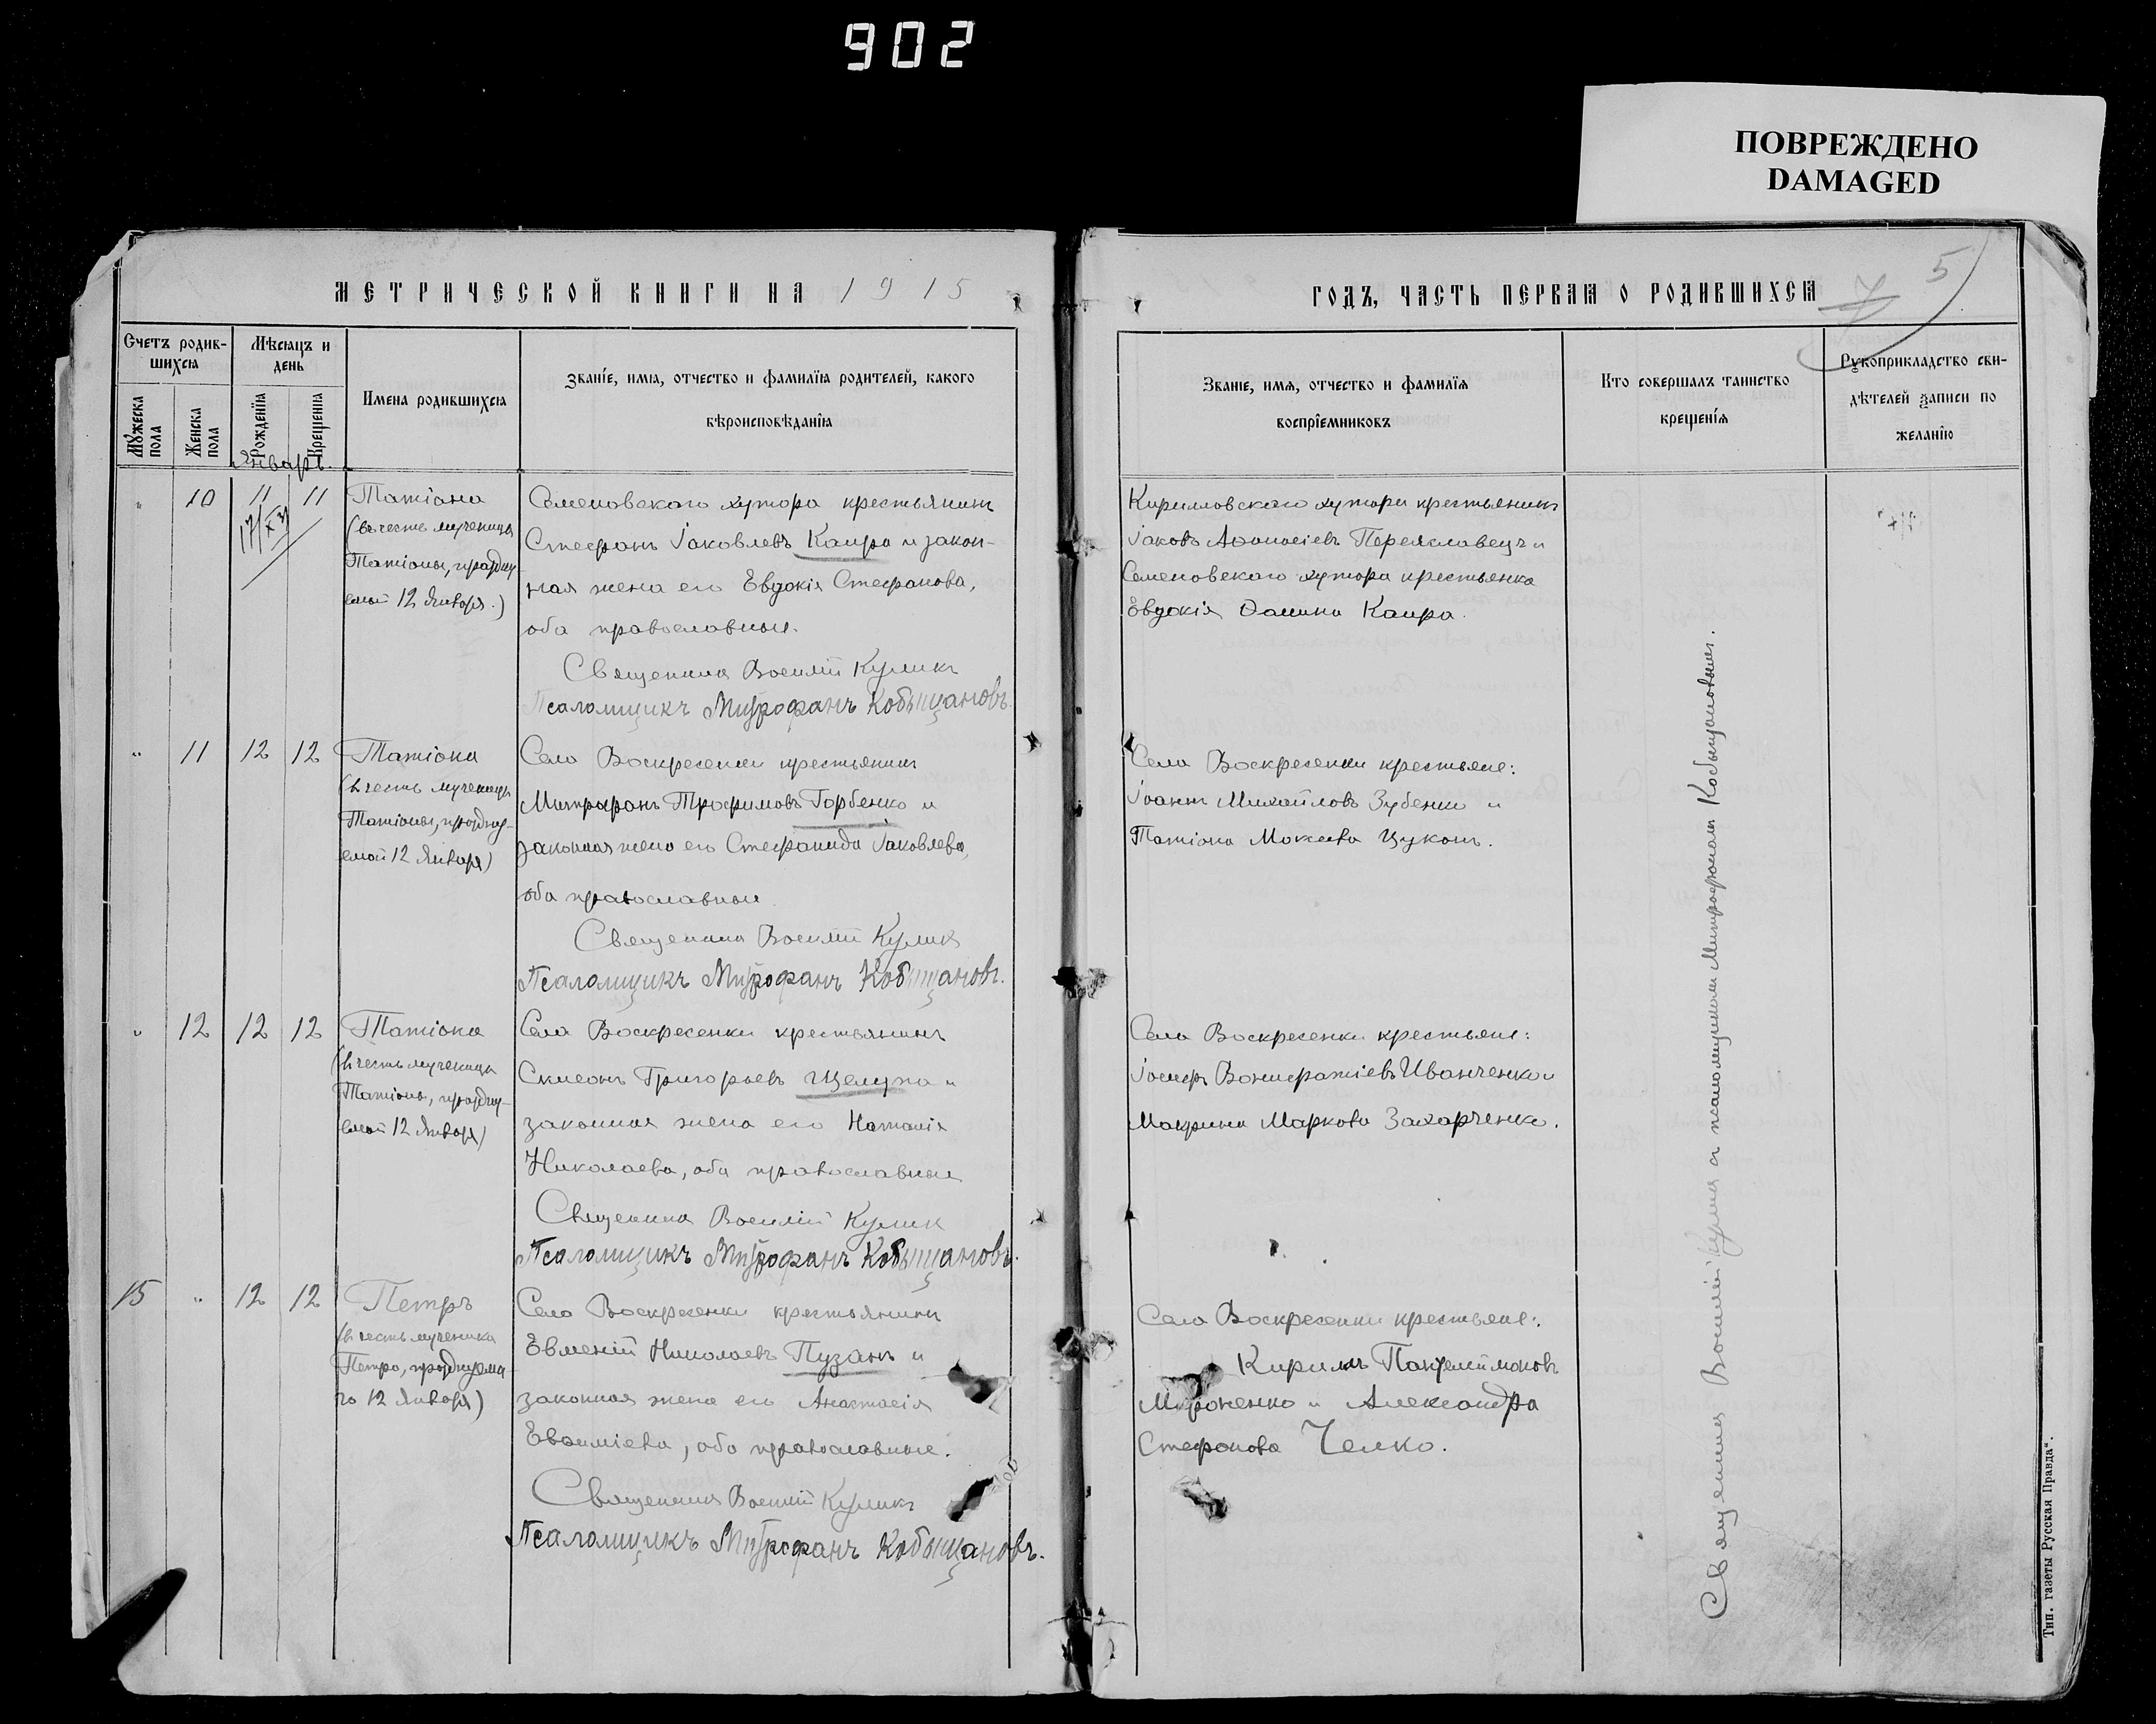 902
ПОВРЕЖДЕНО
DAMAGED
МЕТРИЧЕСКОЙ КНИГИ НА 1915
ГОДЪ, ЧАСТЬ ПЕРВАЯ О РОДИВШИХСЯ
7 5
Счетъ родив-
шихся
Мѣсяцъ и
день
Имена родившихся
Званіе, имя, отчество и фамилія родителей, какого
вѣроисповѣданія
Мужеска пола
Женска пола
Рожденія
Крещенія
Январь.
Званіе, имя, отчество и фамилія
воспріемниковъ
Кто совершалъ таинство
крещенія
Рукоприкладство сви-
дѣтелей записи по
желанію
" 10 11 11 Татіана
(въ честь мученицы
Татіаны, праздну
емой 12 Января.)
Семеновскаго хутора крестьянинъ
Стефанъ Іаковлевъ Каира и закон-
ная жена его Евдокія Стефанова,
оба православные.
Священникъ Василій Куликъ
Псаломщикъ Митрофанъ Кобыщановъ.
Кирилловскаго хутора крестьянинъ
Іаковъ Аѳанасіевъ Переяславецъ и
Семеновскаго хутора крестьянка
Евдокія Ѳомина Каира.
" 11 12 12 Татіана
(въ честь мученицы
Татіаны, праздну-
емой 12 Января)
Села Воскресенки крестьянинъ
Митрофанъ Трофимовъ Горбенко и
законная жена его Стефанида Іаковлева,
оба православные.
Священникъ Василій Куликъ
Псаломщикъ Митрофанъ Кобыщановъ.
Села Воскресенки крестьяне:
Іоаннъ Михайловъ Зубенко и
Татіана Мокеева Цуканъ.
" 12 12 12 Татіана
(въ честь мученицы
Татіаны, праздну-
емой 12 Января)
Села Воскресенки крестьянинъ
Симеонъ Григорьевъ Щелупа и
законная жена его Наталія
Николаева, оба православные
Священникъ Василій Куликъ
Псаломщикъ Митрофанъ Кобыщановъ.
Села Воскресенки крестьяне:
Іосифъ Вонифатіевъ Иванченко и
Макрина Маркова Захарченко.
15 " 12 12 Петръ
(въ честь мученика
Петра, празднуема
го 12 Января)
Села Воскресенки крестьянинъ
Евменій Николаевъ Пузанъ и
законная жена его Анастасія
Евѳиміева, оба православные.
Священникъ Василій Куликъ
Псаломщикъ Митрофанъ Кобыщановъ.
Села Воскресенки крестьяне:
Кириллъ Пантелеймоновъ
Мироненко и Александра
Стефанова Челко.
Священникъ Василій Куликъ съ псаломщикомъ Митрофаномъ Кобыщановымъ.
Тип. газеты „Русская Правда“.